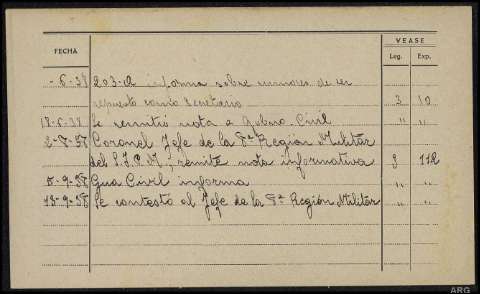 FECHA VEASE
Leg. Exp.
-6-38 203-A informa sobre rumores de ser
repuesto como Secretario 3 10
18-6-38 Se remitió nota a Goberno Civil " "
2-8-38 Coronel Jefe de la 8ª Región Militar
del S.I.P.M., remite nota informativa 3 112
5-9-38 Gua Civil informa " "
13-9-38 Se contestó al Jefe de la 8ª Región Militar " "
ARG